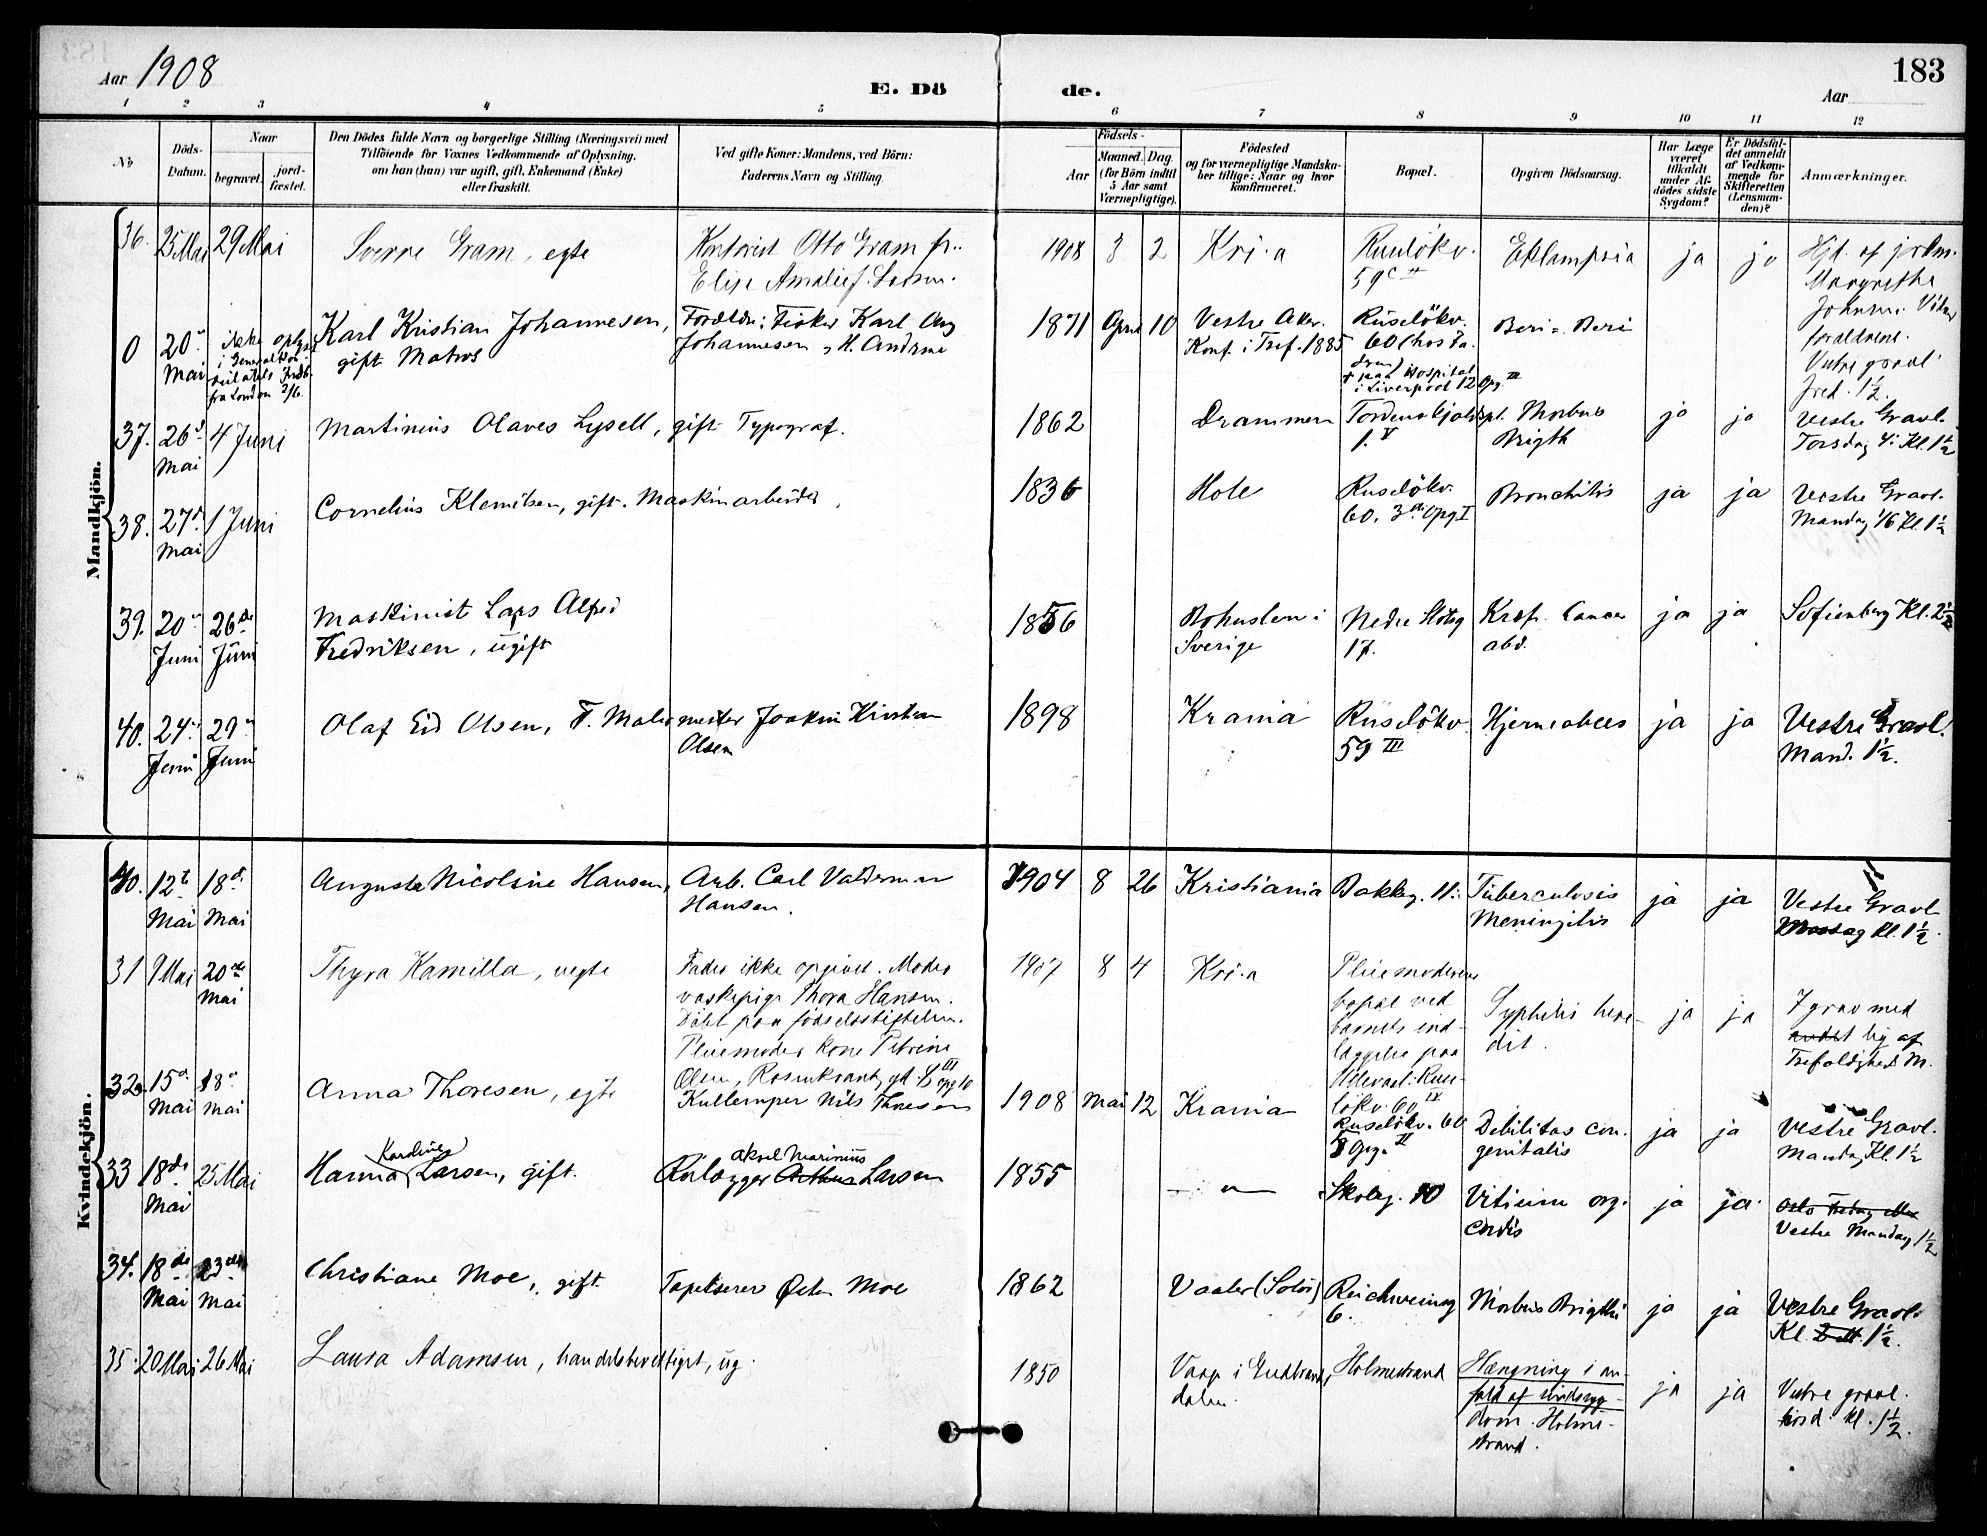 Aar 1908
E. Dö
de.
183
Aar
1 2 3 4 5 6 7 8 9 10 11 12
No
Döds-
Datum.
Naar
begravet.
jord-
fæstet.
Den Dödes fulde Navn og borgerlige Stilling (Næringsvei) med
Tilföiende for Voxnes Vedkommende af Oplysning,
om han (hun) var ugift, gift, Enkemand (Enke)
eller fraskilt.
Ved gifte Koner: Mandens, ved Börn:
Faderens Navn og Stilling.
Födsels-
Aar
Maaned. Dag.
(for Börn indtil
5 Aar samt
Værnepligtige).
Födested
og for værnepligtige Mandska-
ber tillige: Naar og hvor
konfirmeret.
Bopæl.
Opgiven Dödsaarsag.
Har Læge
været
tilkaldt
under Af-
dödes sidste
Sygdom?
Er Dödsfal-
det anmeldt
af Vedkom-
mende for
Skifteretten
(Lensman-
den)?
Anmærkninger.
Mandkjön.
36. 25 Mai 29 Mai
Sverre Gram, egte
Kontorist Otto Gram
Elise Amalie f. Larsen.
1908 3 2
Kri.a
Ruselökv.
59
Eklampsia
ja
ja
Hjd. af jordm.
Margrethe
Johnsen
forældrene.
Vestre gravl.
Fred. 1½.
0 20 Mai
ikke oplyst
i Generalkon-
sulatets Indb.
fra London 2/6.
Karl Kristian Johannesen,
gift Matros
Forældre: Fisker Karl Aug
Johannesen, H. Andrine
1871 April 10
Vestre Aker.
Konf. i Tref. 1885
Ruselökv.
60 (hos Fa-
dren)
† paa Hospital
i Liverpool
Beri-Beri
37. 26 Mai 4 Juni
Martinius Olaves Lysell, gift Typograf.
1862
Drammen
Tordenskjolds pl.
1. V
Morbus
Brigth
ja
ja
Vestre Gravl.
Torsdag 4. Kl. 1½
38. 27 Mai 1 Juni
Cornelius Klemetsen, gift. Maskinarbeider.
1836
Hole
Ruselökv.
60. 3 Opg I
Bronchitis
ja
ja
Vestre Gravl.
Mandag 1/6 Kl. 1½
39. 20 Juni 26 de Juni
Maskinist Lars Alfred
Fredriksen, ugift
1856
Bohuslen i
Sverige
Nedre Slotsg
17.
Kræft. Cancer
abd.
ja
ja
Sofienberg Kl. 2½
40. 24 Juni 29 Juni
Olaf Eid Olsen,
F. Malermester Joakim Kristian
Olsen
1898
Krania
Ruselökv.
59 III
Hjerneabces
ja
ja
Vestre Gravl.
Mand. 1½.
Kvindekjön.
40. 12 Mai 18 Mai
Augusta Nicoline Hansen,
Arb. Carl Valdemar
Hansen.
1904 8 26
Kristiania
Bakkeg. 11.
Tuberculosis
Meningitis
ja
ja
Vestre Gravl
Kl. 1½.
31 9 Mai 20 Mai
Thyra Kamilla, uegte
Fader ikke opgivet. Moder
vaskepige Thora Hansen.
Döbt paa födselsstiftelsen.
Pleiemoder kone Petrine
Olsen, Rosenkrantz gd. opg 10
1907 8 4
Kri.a
Pleiemoderens
bopæl ved
barnets ind-
læggelse paa
Ruse-
lökv. 60
Syphilis here-
dit.
ja
ja
I grav med
lig af
Trefoldighed M.
32. 15 Mai 18 Mai
Anna Thoresen, egte
Kullemper Nils Thoresen
1908 Mai 12
Krania
Ruselökv. 60
Opg. II
Debilitas con-
genitalis
ja
ja
Vestre Gravl.
Mandag Kl. 1½
33 18 de Mai 25 Mai
Karoline
Hanna Larsen, gift.
Aksel Marinius
Rörlægger Arthur Larsen
1855
— " —
Skoleg. 10
Vitium org.
cordis
ja
ja
Oslo Fredag eller
Vestre Mandag 1½
34. 18 de Mai 23 Mai
Christiane Moe, gift
Tapetserer Peter Moe
1862
Vaaler (Solör)
Reichweinsg
6.
Morbus Brigthi
ja
ja
Vestre Gravl.
Kl. 1½.
35. 20 Mai 26 Mai
Laura Adamsen, handelsberettiget, ug.
1850
Vaage i Gudbrands
dalen.
Holmestrand
Hængning i an-
fald af sindssyg-
dom. Holme-
strand.
ja
ja
Vestre gravl.
Tirsd. kl. 1½.